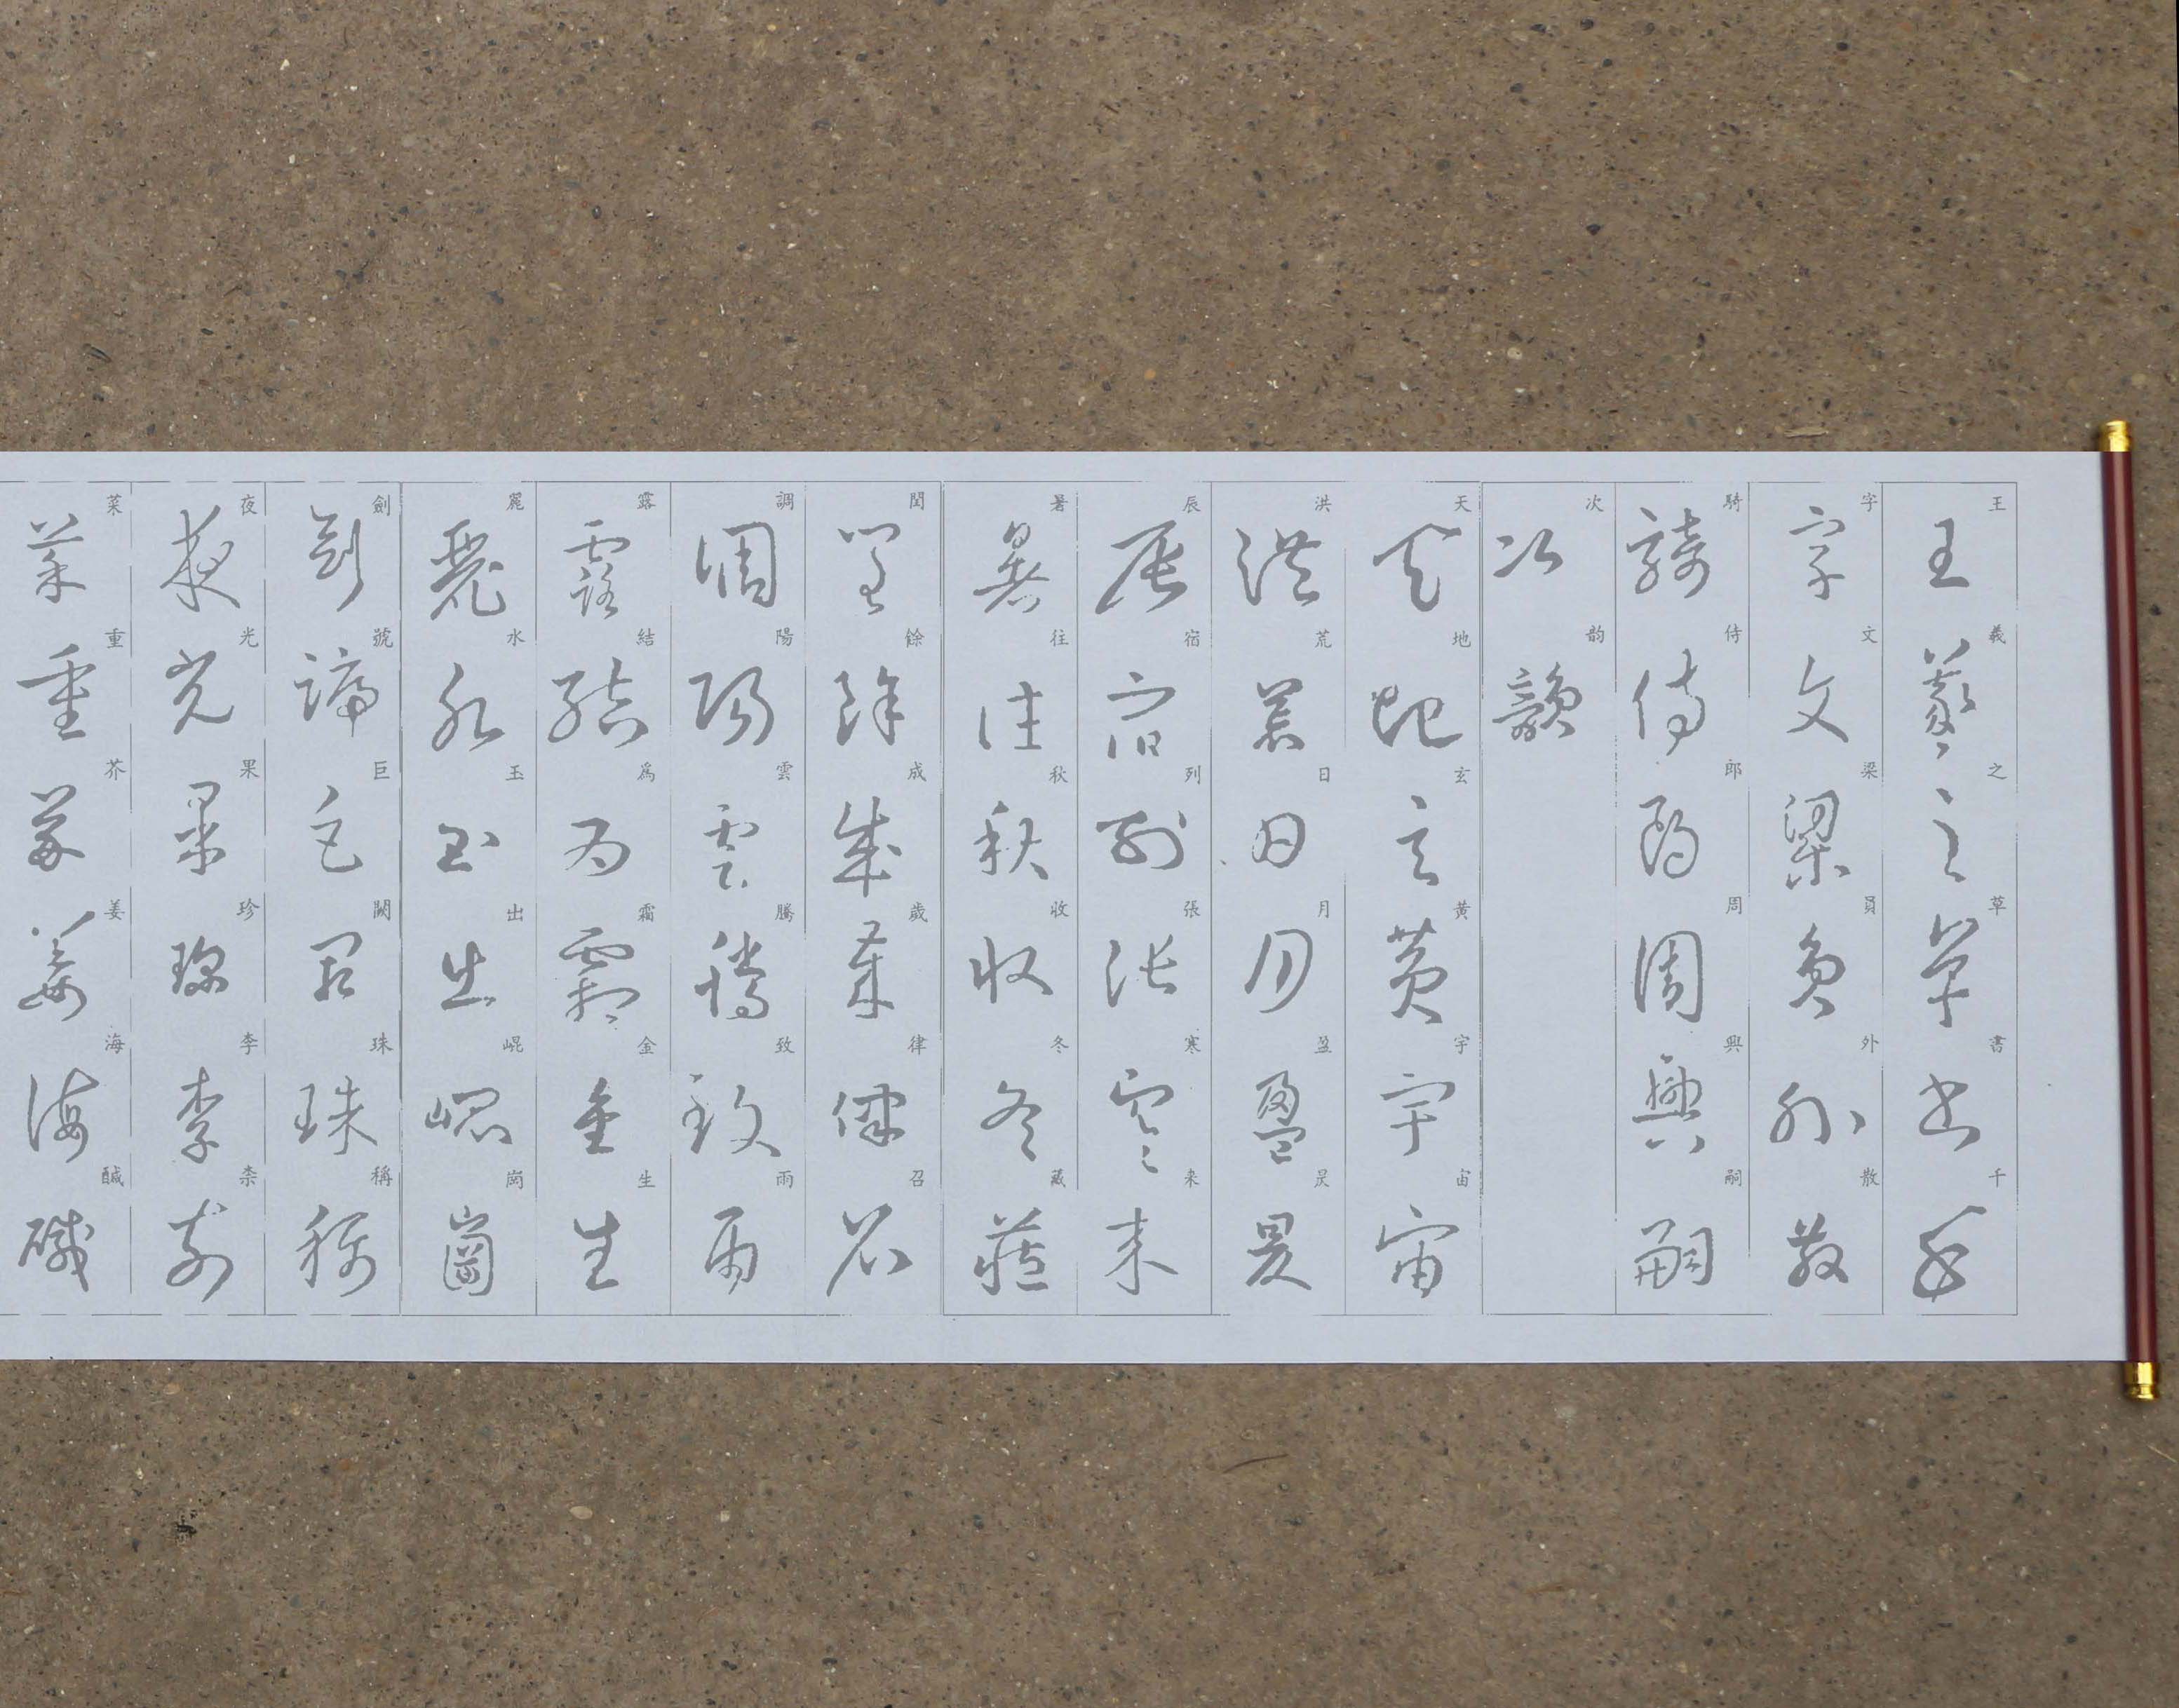 王羲之草書千
字文梁員外散
騎侍郎周興嗣
次韵
天地玄黃宇宙
洪荒日月盈昃
辰宿列張寒来
暑往秋收冬藏
閏餘成歲律召
調陽雲騰致雨
露結爲霜金生
麗水玉出崐崗
劍號巨闕珠稱
夜光果珍李柰
菜重芥姜海醎